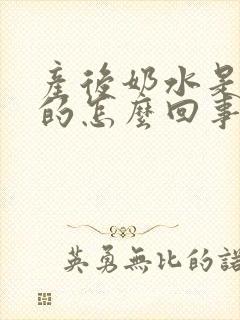 產後奶水是
的怎麼回事
英勇無比的諾